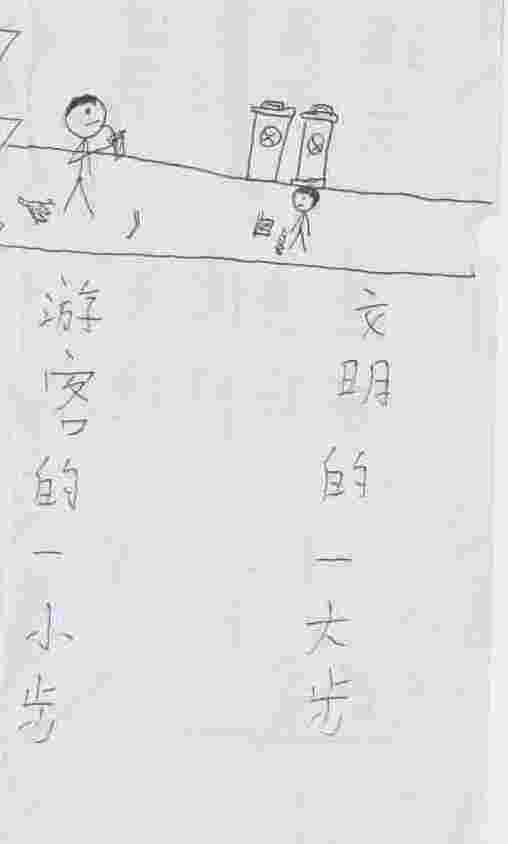 游客的一小步
文明的一大步